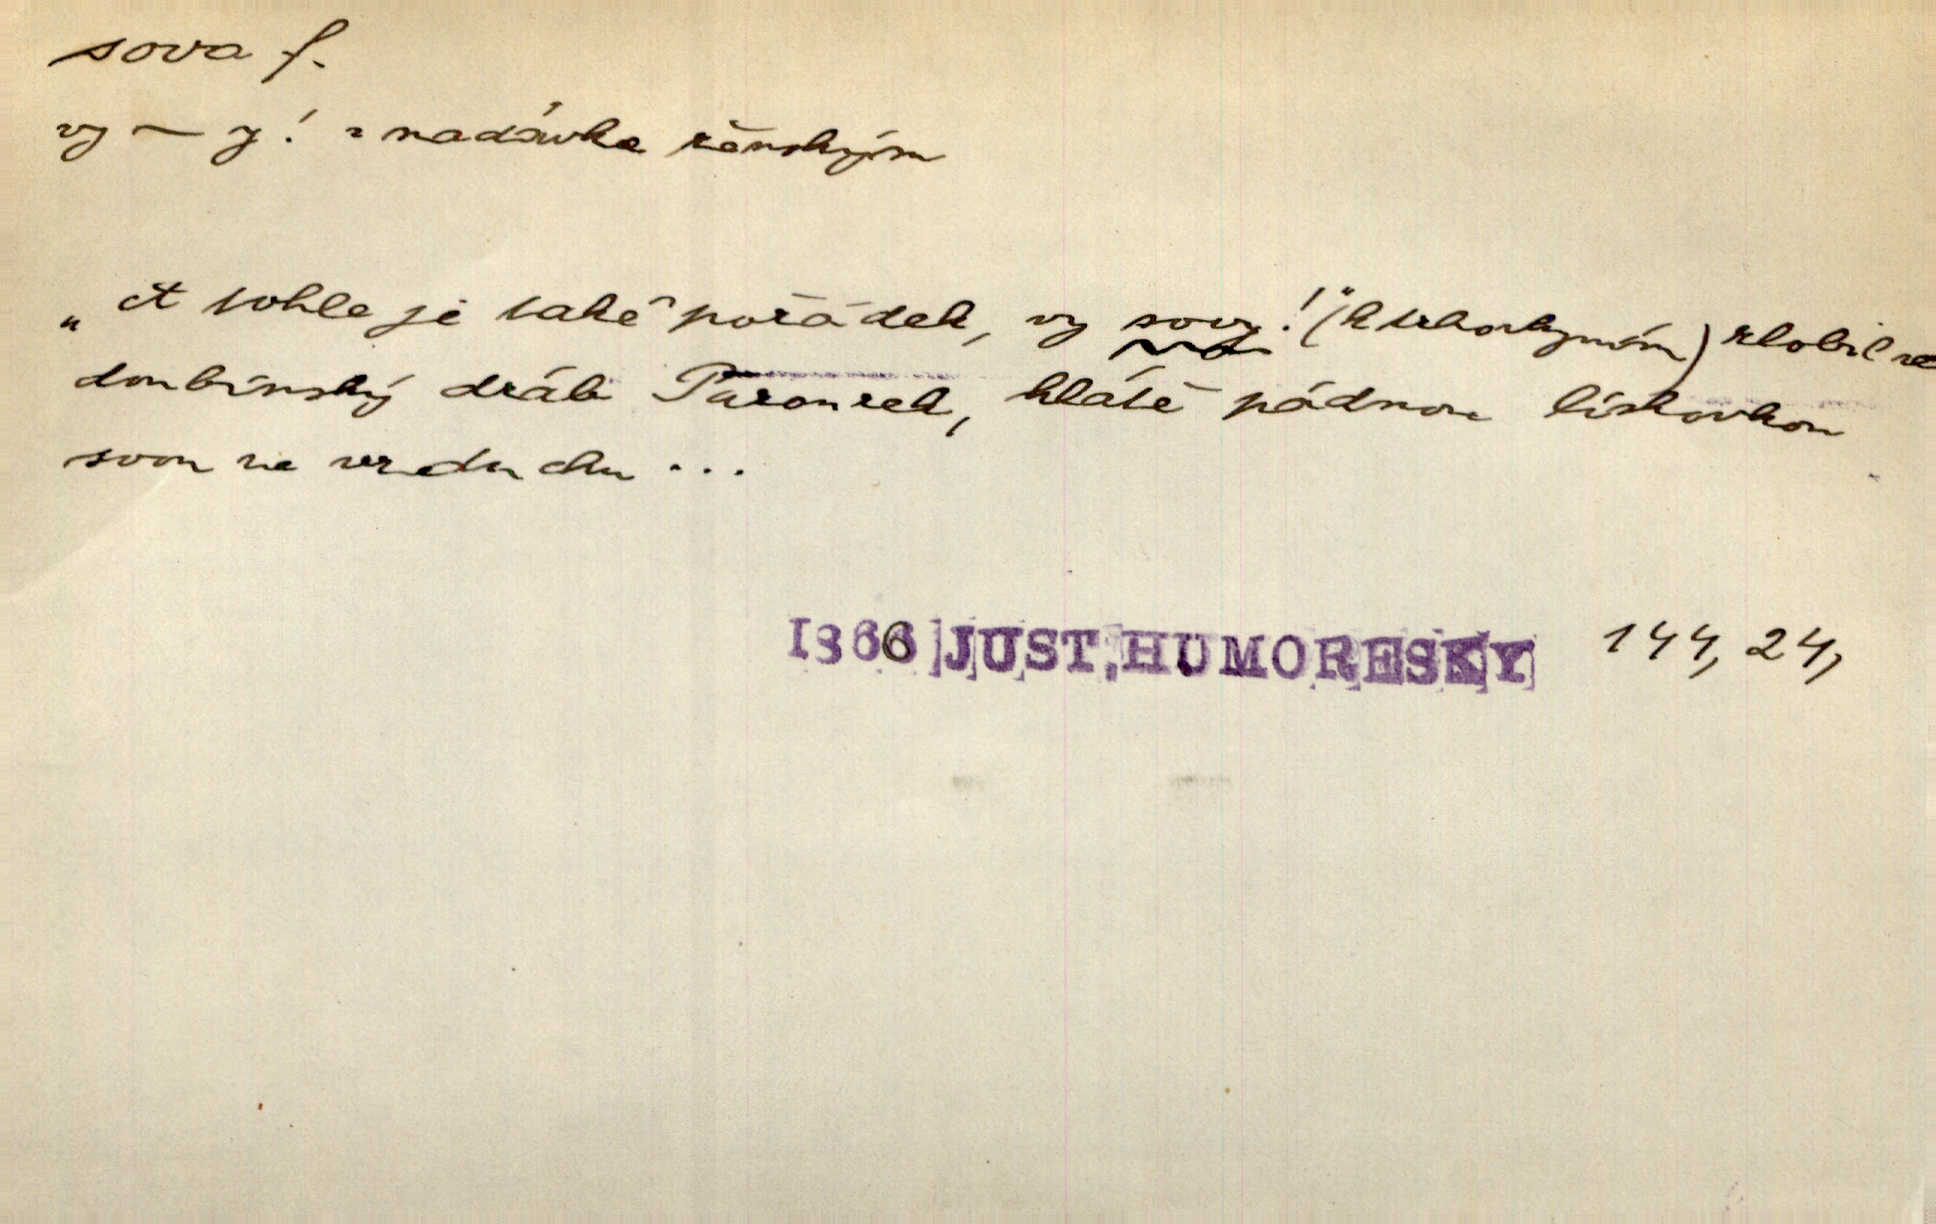 sova f.
vy ~ y! = nadávka ženským
„A tohle je také pořádek, vy sovy!" (k trhovkyním) zlobil se
doubínský dráb Parourek, klátě pádnou lískovkou
svou ve vzduchu ...
1866 JUST, HUMORESKY 144, 24,